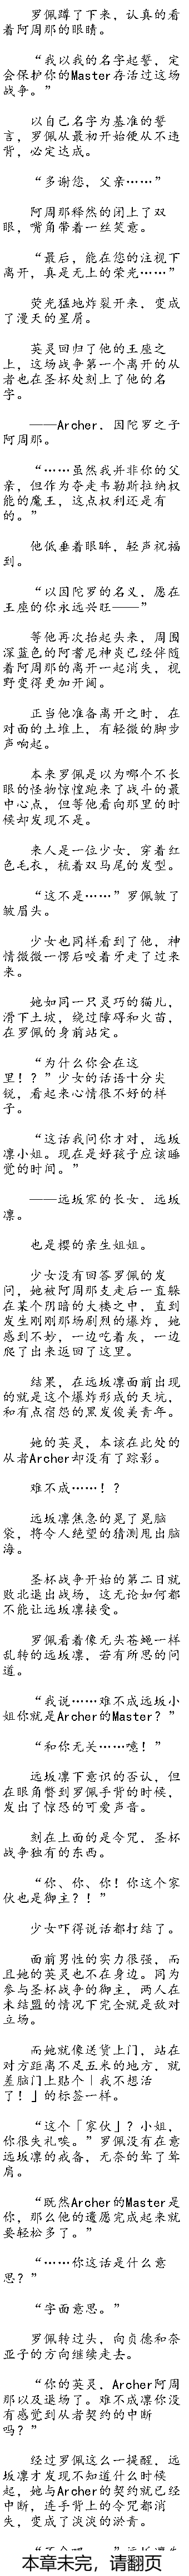 罗佩蹲了下来，认真的看
着阿周那的眼睛。
“我以我的名字起誓，定
会保护你的Master存活过这场
战争。”
以自己名字为基准的誓
言，罗佩从最初开始便从不违
背，必定达成。
“多谢您，父亲……”
阿周那释然的闭上了双
眼，嘴角带着一丝笑意。
“最后，能在您的注视下
离开，真是无上的荣光……”
荧光猛地炸裂开来，变成
了漫天的星屑。
英灵回归了他的王座之
上，这场战争第一个离开的从
者也在圣杯处刻上了他的名
字。
——Archer．因陀罗之子
阿周那。
“……虽然我并非你的父
亲，但作为夺走韦勒斯拉纳权
能的魔王，这点权利还是有
的。”
他低垂着眼眸，轻声祝福
到。
“以因陀罗的名义，愿在
王座的你永远兴旺——”
等他再次抬起头来，周围
深蓝色的阿耆尼神炎已经伴随
着阿周那的离开一起消失，视
野变得更加开阔。
正当他准备离开之时，在
对面的土堆上，有轻微的脚步
声响起。
本来罗佩是以为哪个不长
眼的怪物惊惶跑来了战斗的最
中心点，但等他看向那里的时
候却发现不是。
来人是一位少女，穿着红
色毛衣，梳着双马尾的发型。
“这不是……”罗佩皱了
皱眉头。
少女也同样看到了他，神
情微微一愣后咬着牙走了过来
来。
她如同一只灵巧的猫儿，
滑下土坡，绕过障碍和火苗，
在罗佩的身前站定。
“为什么你会在这
里！？”少女的话语十分尖
锐，看起来心情很不好的样
子。
“这话我问你才对，远坂
凛小姐。现在是好孩子应该睡
觉的时间。”
——远坂家的长女．远坂
凛。
也是樱的亲生姐姐。
少女没有回答罗佩的发
问，她被阿周那支走后一直躲
在某个阴暗的大楼之中，直到
发生刚刚那场剧烈的爆炸，她
感到不妙，一边吃着灰，一边
爬了出来返回了这里。
结果，在远坂凛面前出现
的就是这个爆炸形成的天坑，
和有点宿怨的黑发俊美青年。
她的英灵，本该在此处的
从者Archer却没有了踪影。
难不成……！？
远坂凛焦急的晃了晃脑
袋，将令人绝望的猜测甩出脑
海。
圣杯战争开始的第二日就
败北退出战场，这无论如何都
不能让远坂凛接受。
罗佩看着像无头苍蝇一样
乱转的远坂凛，若有所思的问
道。
“我说……难不成远坂小
姐你就是Archer的Master？”
“和你无关……噫！”
远坂凛下意识的否认，但
在眼角瞥到罗佩手背的时候，
发出了惊恐的可爱声音。
刻在上面的是令咒，圣杯
战争独有的东西。
“你、你、你！你这个家
伙也是御主？！”
少女吓得说话都打结了。
面前男性的实力很强，而
且她的英灵也不在身边。同为
参与圣杯战争的御主，两人在
未结盟的情况下完全就是敌对
立场。
而她就像送货上门，站在
对方距离不足五米的地方，就
差脑门上贴个「我不想活
了！」的标签一样。
“这个「家伙」？小姐，
你很失礼唉。”罗佩没有在意
远坂凛的戒备，无奈的耸了耸
肩。
“既然Archer的Master是
你，那么他的遗愿完成起来就
要轻松多了。”
“……你这话是什么意
思？”
“字面意思。”
罗佩转过头，向贞德和奈
亚子的方向继续走去。
“你的英灵．Archer阿周
那以及退场了。难不成凛你没
有感觉到从者契约的中断
吗？”
经过罗佩这么一提醒，远
坂凛才发现不知道什么时候
起，她与Archer的契约就已经
中断，连手背上的令咒都消
失，变成了淡淡的淤青。
本章未完，请翻页